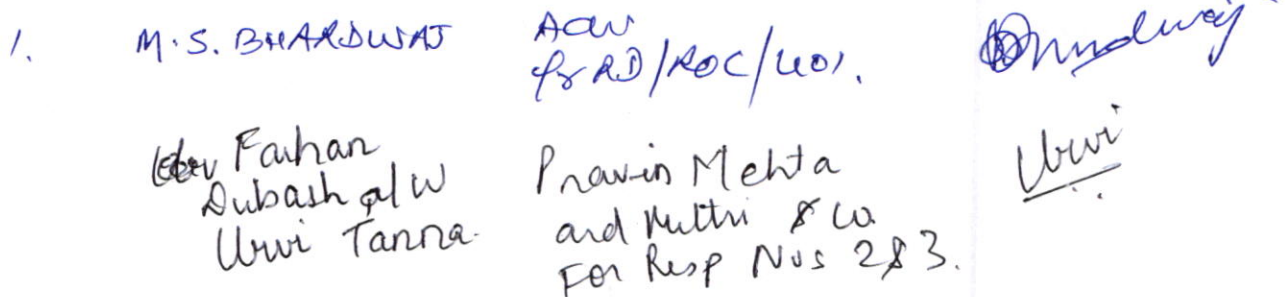 1. M.S. BHARDWAJ
Adv
for RD/ROC/UOI.
Farhan
Dubash a/w
Urvi Tanna.
Pravin Mehta
and Mithi & Co.
For Resp Nos 2&3.
Urvi